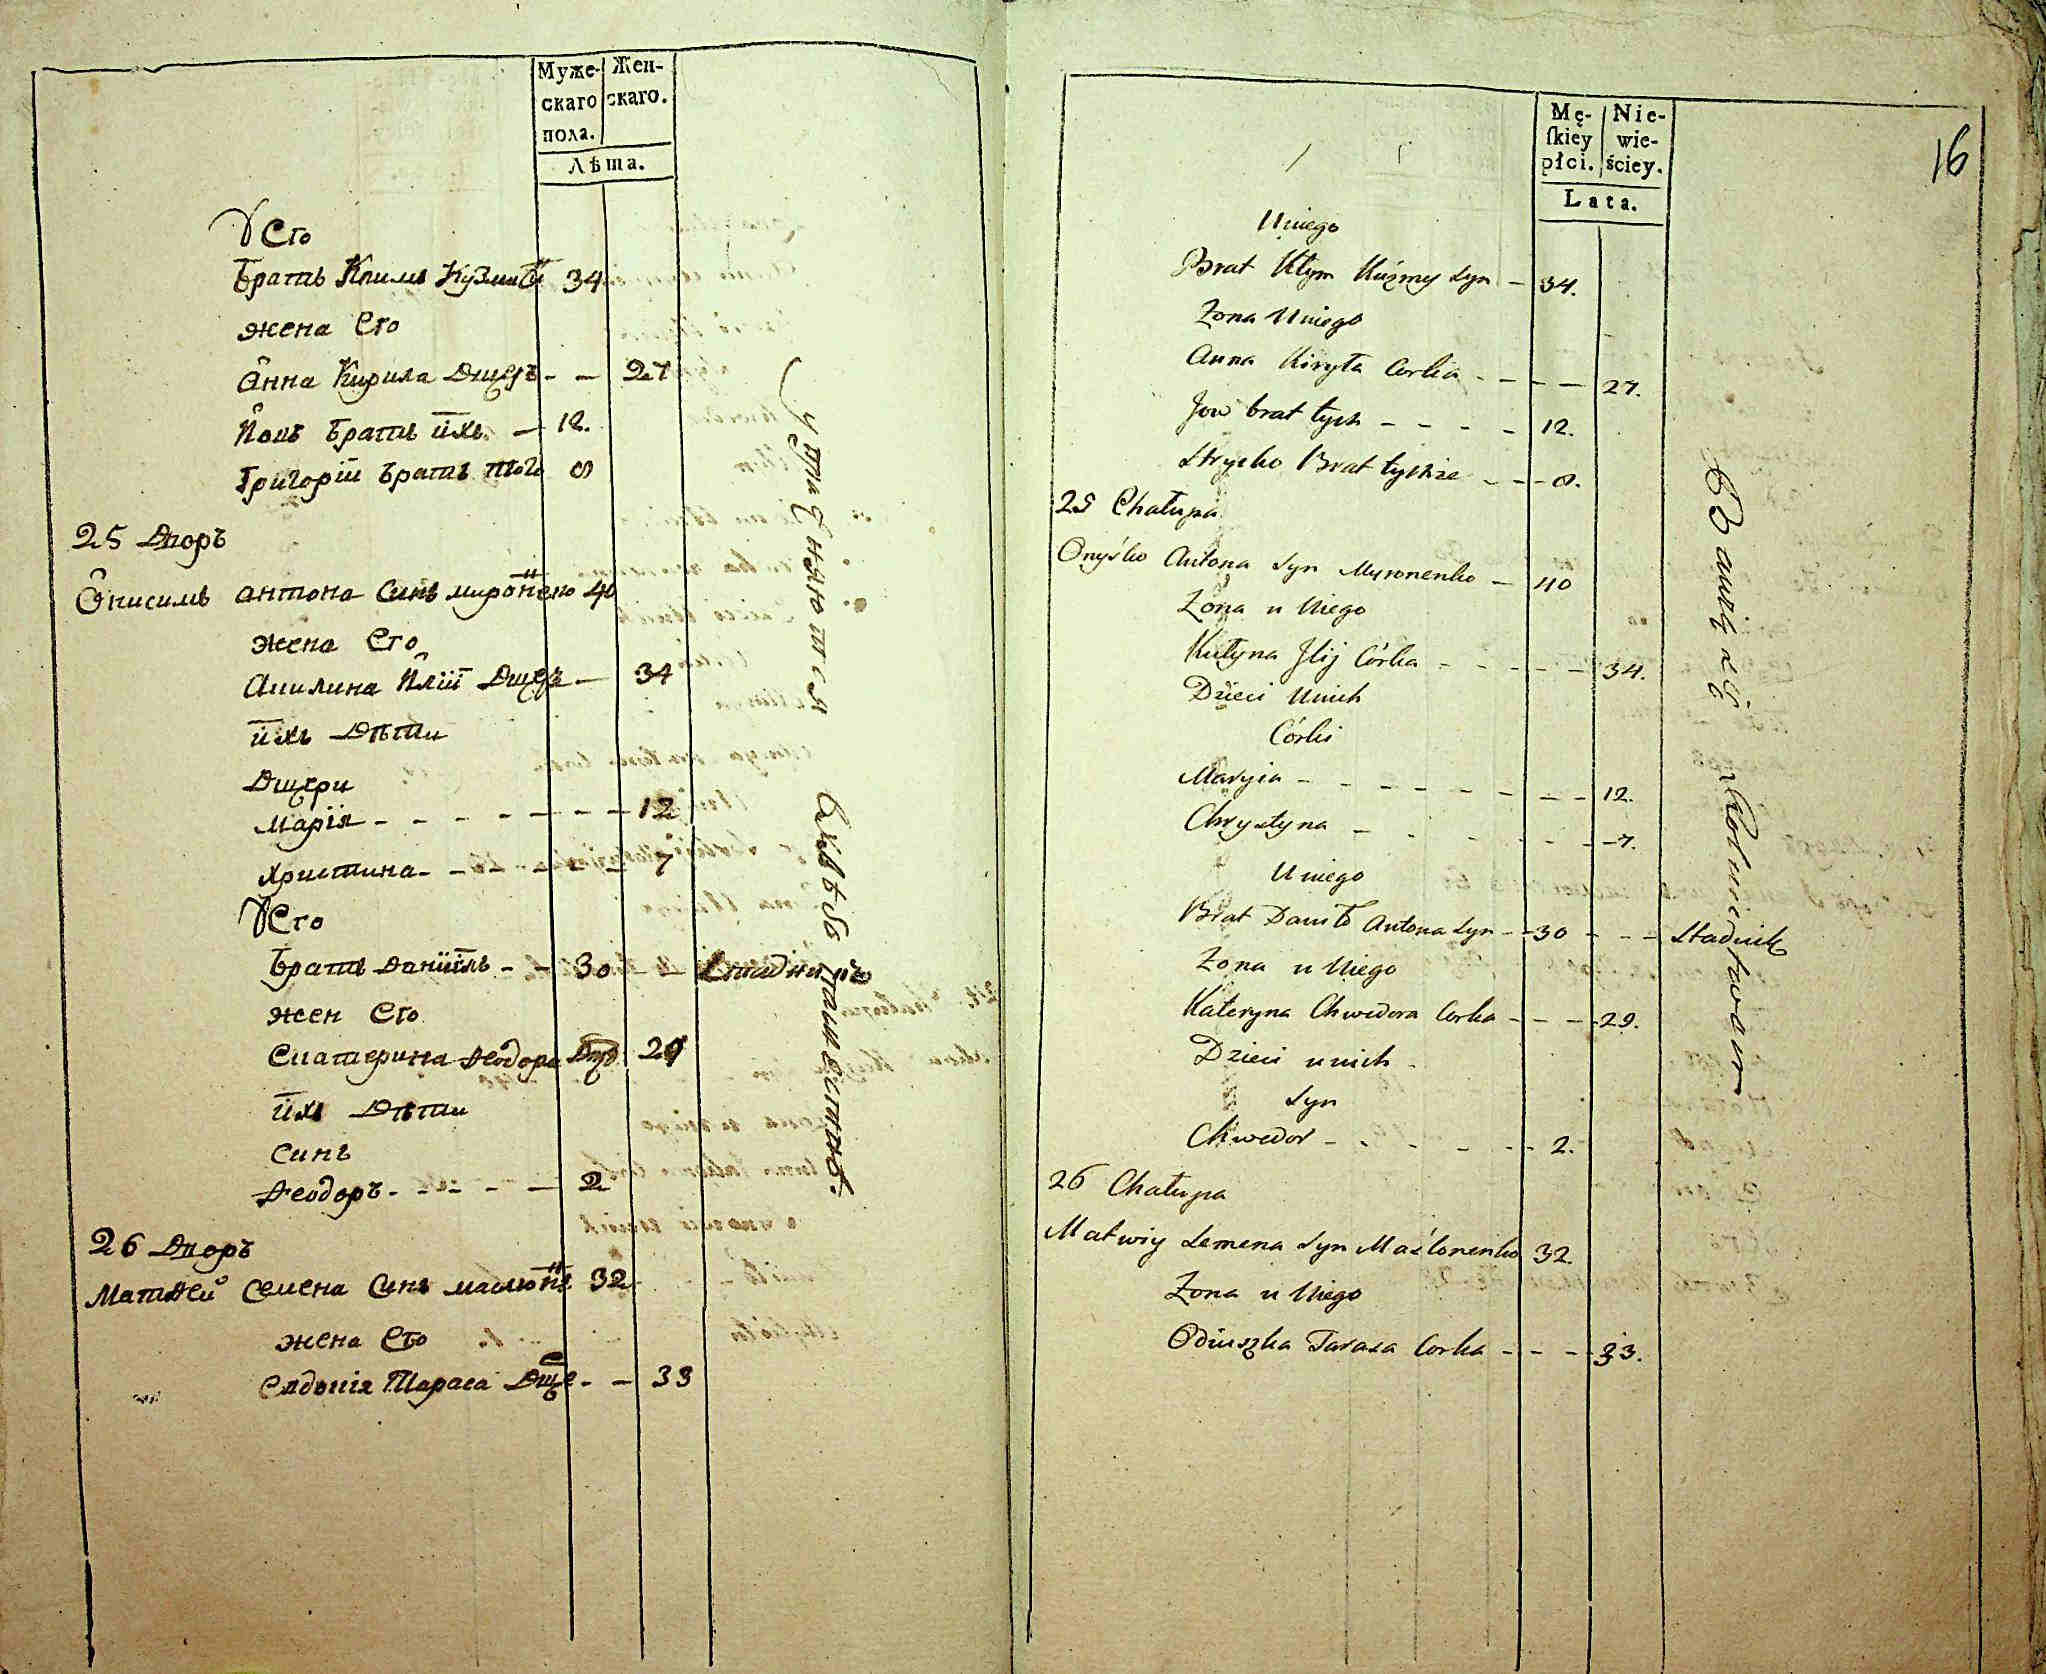 Муже-
скаго
пола.
Жен-
скаго.
Лѣта.
У Его
Братъ Климъ Кузминъ 34
жена Его
Анна Кирила Дщерь - - 27
Иовъ Братъ ихъ - 12.
Григорій Братъ того 8
25 Дворъ
Онисимъ Антона Синъ Миронено 40
жена Его
Акилина Иліи Дщерь - 34
ихъ Дѣти
Дщери
Марія - - - - - - - 12
Христина - - - - - 7
У Его
Братъ Даніилъ - - 30 - Стадникъ
жен Его
Екатерина Ѳеодора Дщер 29
ихъ Дѣти
Синъ
Ѳеодоръ - - - - - 2
26 Дворъ
Матѳей Семена Синъ маслюне 32
жена Его
Евдокія Тараса Дще - - 33
упражняются хлѣбопашествомъ.
Mę-
skiey
płci.
Nie-
wie-
ściey.
Lata.
16
Uniego
Brat Kłym Kuźmy Syn - 34.
Zona Uniego
Anna Kiryła Corka - - - - 27.
Jow brat tych - - - - 12.
Hryćko Brat tychże - - - 8.
25 Chałupa
Onyśko Antona Syn Myronenko - 40
Zona u Niego
Kułyna Jlij Córka - - - - - 34.
Dzieci Unich
Córki
Maryia - - - - - - - - - 12.
Chrystyna - - - - - - 7.
Uniego
Brat Daniło Antona Syn - - 30 - - - Stadnik
Zona u Niego
Kateryna Chwedora Corka - - - - 29.
Dzieci unich
Syn
Chwedor - - - - - - 2.
26 Chałupa
Matwiy Semena Syn Maslonenko 32.
Zona u Niego
Odiuszka Tarasa Corka - - - - 33.
Bawią się Rolnictwem